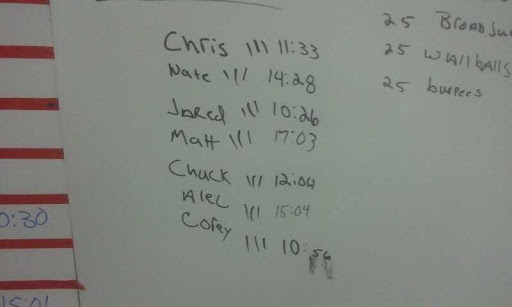 Chris ||| 11:33
Nate ||| 14:28
Jared ||| 10:26
Matt ||| 17:03
Chuck ||| 12:04
Alec ||| 15:04
Corey ||| 10:56
25 Broad Ju
25 wallballs
25 burpees
0:30
15:01